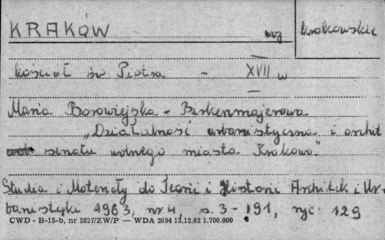 KRAKÓW woj krakowskie
kościół św Piotra - XVII w
Maria Borowiejska - Birkenmajerowa
"Działalność urbanistyczna i archit
senatu wolnego miasta Krakowa"
Studia i Materiały do Teorii i Historii Architek i Ur
banistyki 1963, nr 4, s. 3-191, ryc. 129
CWD - B-15-b, nr 2827/ZW/P — WDA 2694 12.12.62 1.700.000